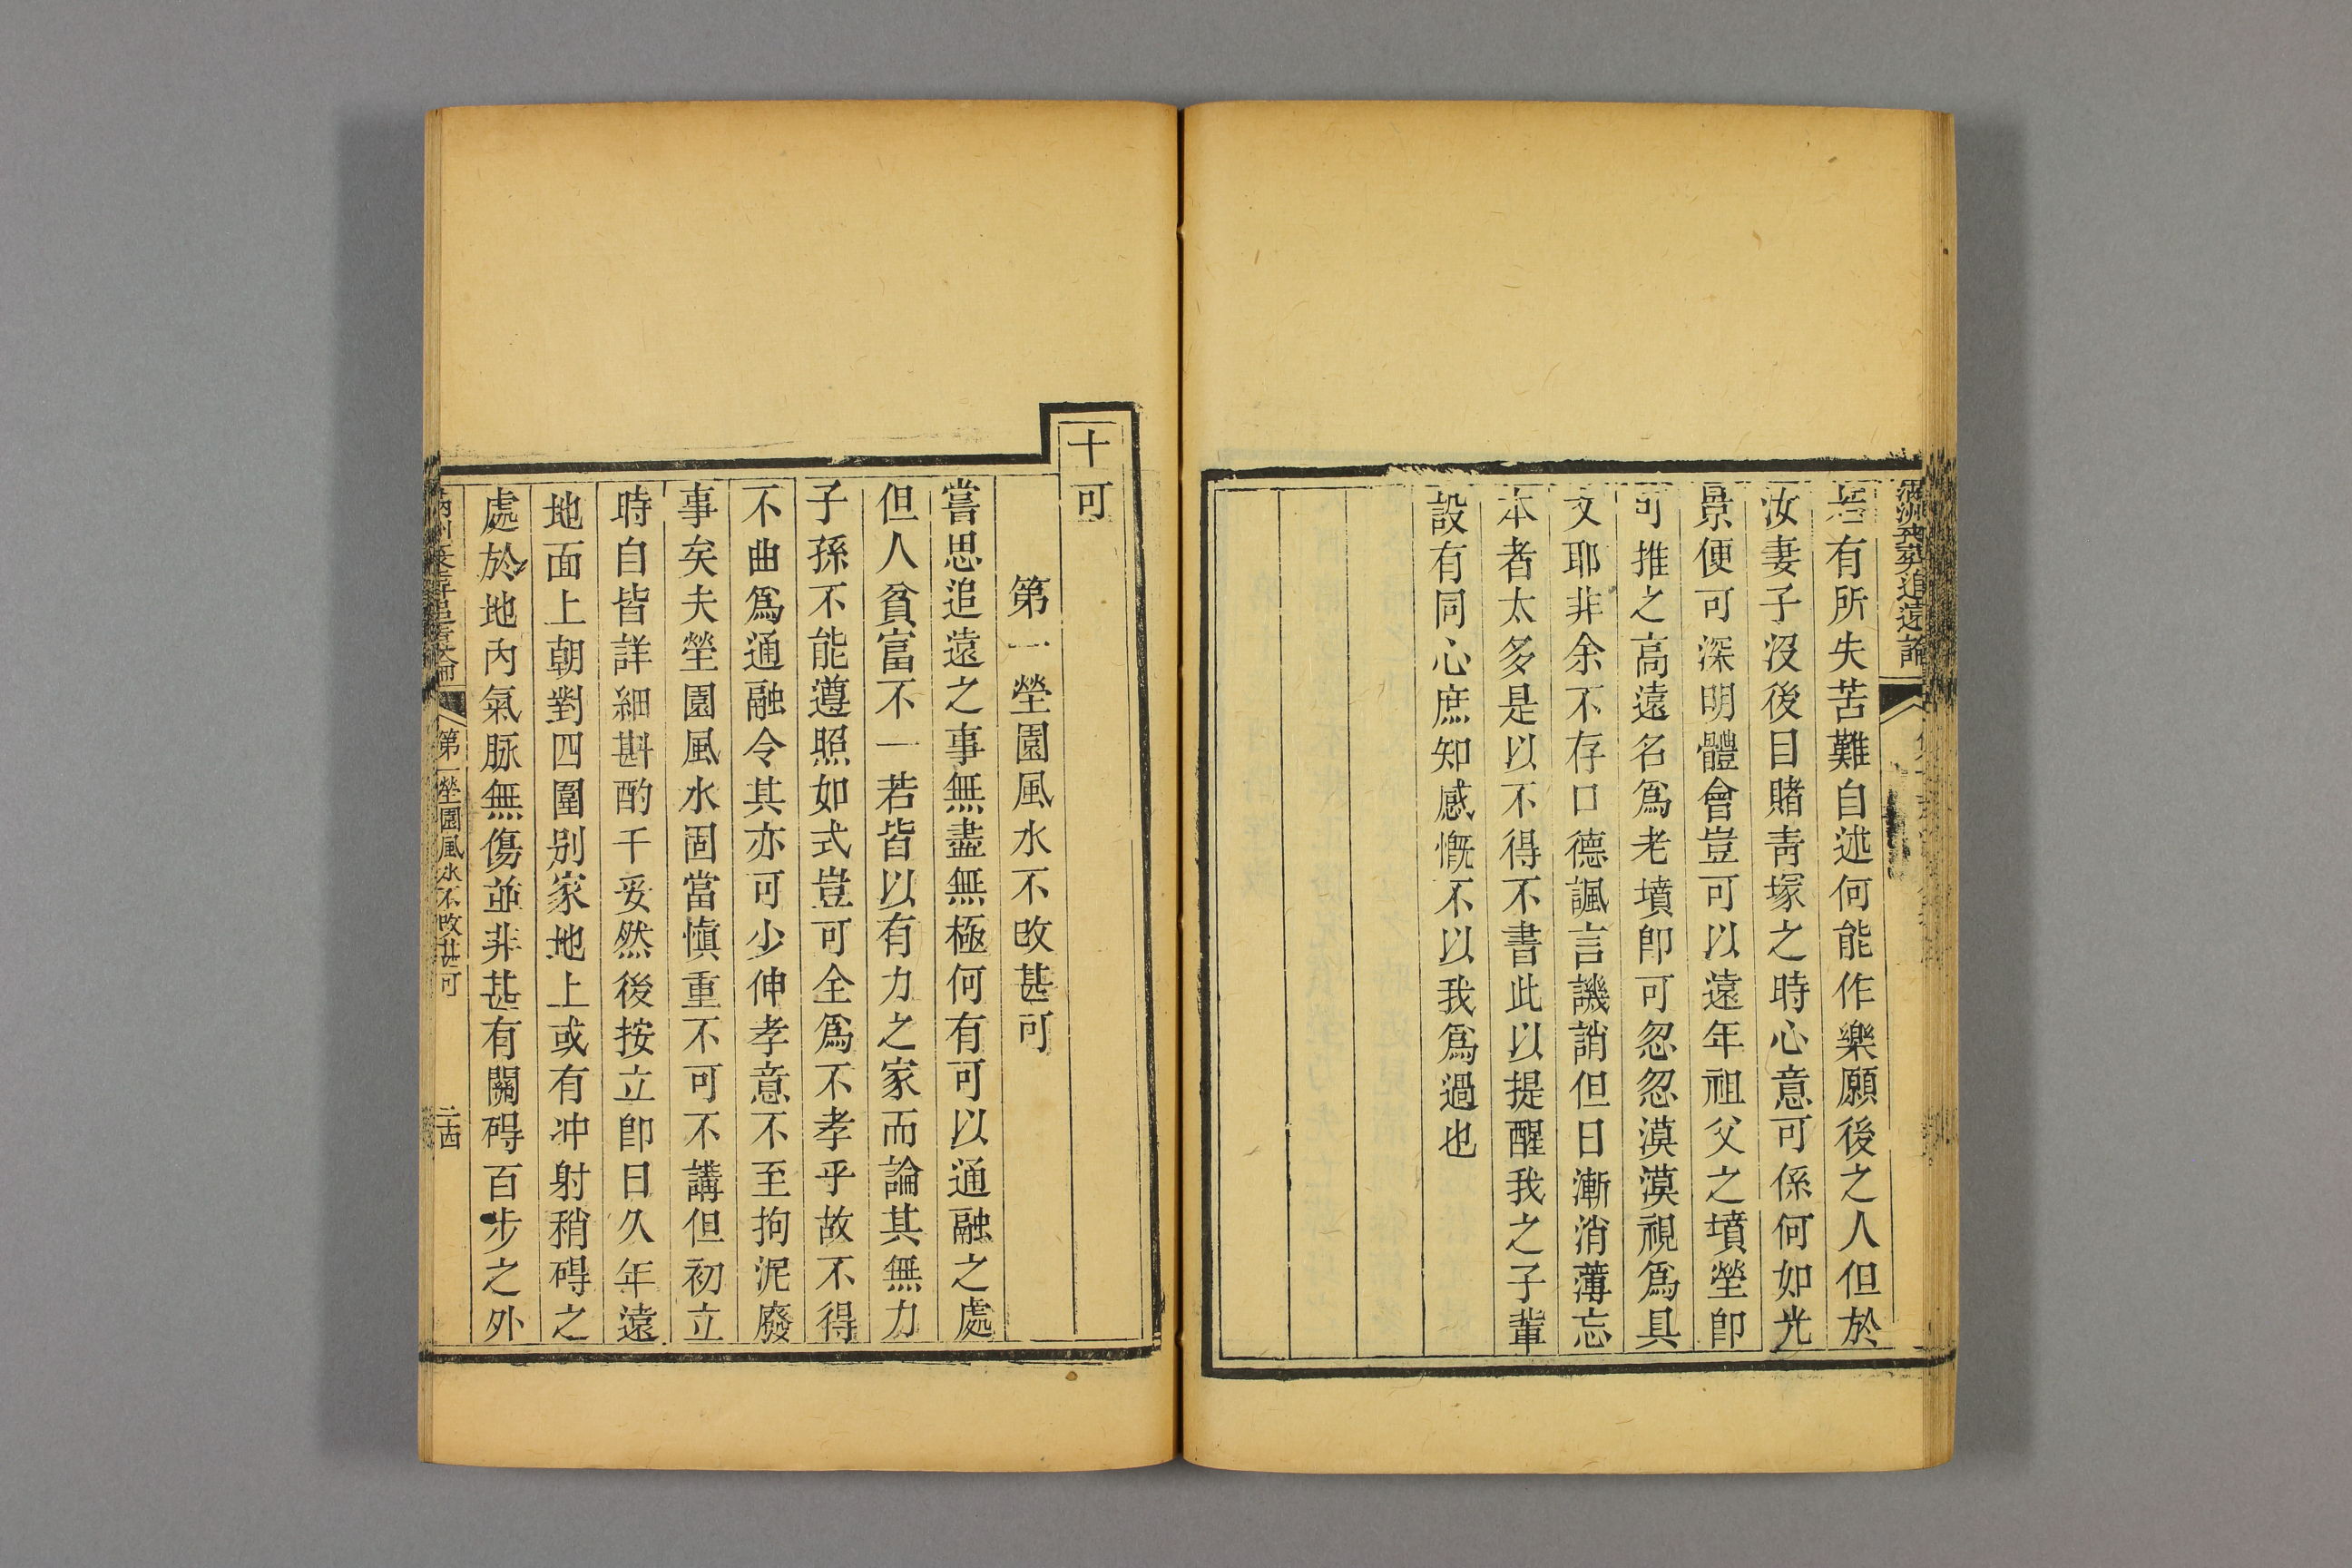 滿洲喪葬追遠論
有所失苦難自述何能作樂願後之人但於
汝妻子沒後目賭靑塚之時心意可係何如光
景便可深明體會豈可以遠年祖父之墳塋卽
可推之高遠名爲老墳卽可忽忽漠漠視爲具
文耶非余不存口德諷言譏誚但日漸消薄忘
本者太多是以不得不書此以提醒我之子輩
設有同心庶知感慨不以我爲過也
十可
第一塋園風水不改甚可
嘗思追遠之事無盡無極何有可以通融之處
但人貧富不一若皆以有力之家而論其無力
子孫不能遵照如式豈可全爲不孝乎故不得
不曲爲通融令其亦可少伸孝意不至拘泥廢
事矣夫塋園風水固當愼重不可不講但初立
時自皆詳細斟酌千妥然後按立卽日久年遠
地面上朝對四圍别家地上或有冲射稍碍之
處於地內氣脉無傷並非甚有關碍百步之外
第一塋園風水不改甚可
二十四